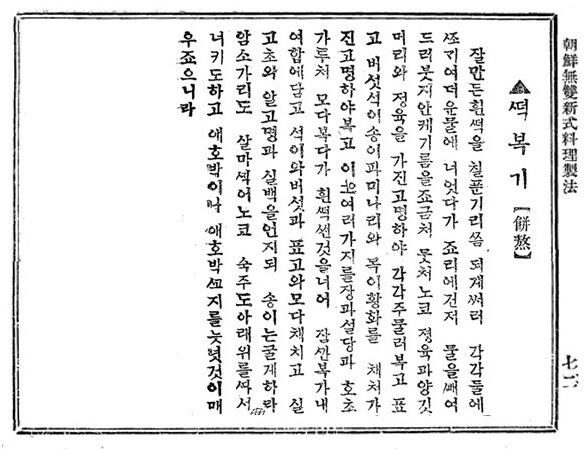 朝鮮無雙新式料理製法
七二
▲떡복기【餠熬】
잘만든흰떡을 칠푼기리쯤 되게써러 각각둘에
쪼기여더운물에 너엇다가 죠리에건저 물을빼여
드러붓지안케기름을죠금처 뭇처노코 졍육과양깃
머리와 졍육을 가진고명하야 각각주물러복고 표
고 버섯석이송이파미나리와 목이황화를 채처가
진고명하야복고 여러가지를장과설당과 호초
가루처 모다복다가 흰떡썬것을너어 잠깐복가내
여합에담고 석이와버섯과 표고와모다채치고 실
고초와 알고명과 실백을언지되 송이는굴게하라
암소가리도 살마찍어노코 숙주도아래위를싸서
너키도하고 애호박이나 애호박 것이매
우죠으니라